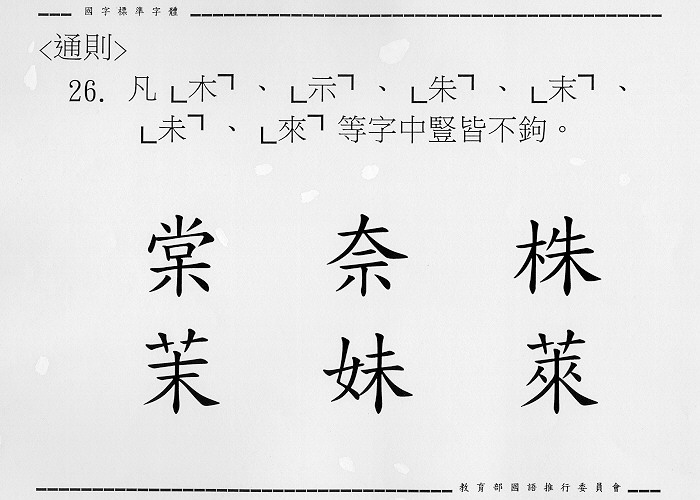 國字標準字體
<通則>
26. 凡「木」、「示」、「朱」、「末」、
「未」、「來」等字中豎皆不鉤。
棠 奈 株
茉 妹 萊
教育部國語推行委員會